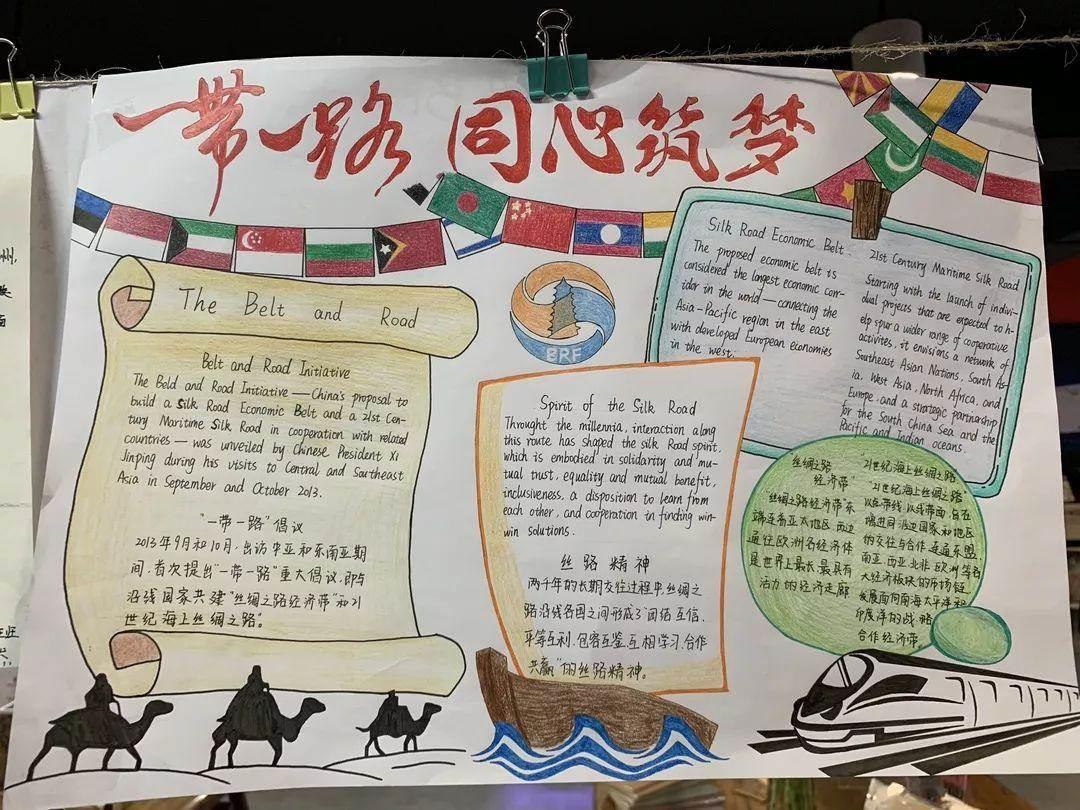 一带一路 同心筑梦
The Belt and Road
Belt and Road Initiative
The Beld and Road Initiative — China's proposal to
build a Silk Road Economic Belt and a 21st Cen-
tury Maritime Silk Road in cooperation with related
countries — was unveiled by Chinese President Xi
Jinping during his visits to Central and Southeast
Asia in September and October 2013.
"一带一路"倡议
2013年9月和10月,出访中亚和东南亚期
间,首次提出"一带一路"重大倡议,即与
沿线国家共建"丝绸之路经济带"和21
世纪海上丝绸之路"。
BRF
Spirit of the Silk Road
Throught the millennia, interaction along
this route has shaped the silk Road spirit,
which is embodied in solidarity and mu-
tual trust, equality and mutual benefit,
inclusiveness, a disposition to learn from
each other, and cooperation in finding win-
win solutions.
丝路精神
两千年的长期交往过程中,丝绸之
路沿线各国之间形成了"团结互信,
平等互利,包容互鉴,互相学习,合作
共赢"的丝路精神。
Silk Road Economic Belt
The proposed economic belt is
considered the longest economic cor-
ridor in the world — connecting the
Asia-Pacific region in the east
with developed European economies
in the west.
21st Century Maritime Silk Road
Starting with the launch of indivi-
dual projects that are expected to h-
elp spur a wider range of cooperative
activites, it envisions a network of
Southeast Asian Nations, South As-
ia, West Asia, North Africa, and
Europe and a strategic partnership
for the South China Sea and the
Pacific and Indian oceans.
丝绸之路
经济带"
"丝绸之路经济带"东
端连着亚太地区,西边
通往欧洲各经济体
是世界上最长、最具有
活力的经济走廊
"21世纪海上丝绸之路
"21世纪海上丝绸之路
以点带线,以线带面,旨在
增进同沿边国家和地区
的交往与合作,连通东盟
南亚,西亚,北非,欧洲等各
大经济板块的市场链
发展面向南海,太平洋和
印度洋的战略
合作经济带。